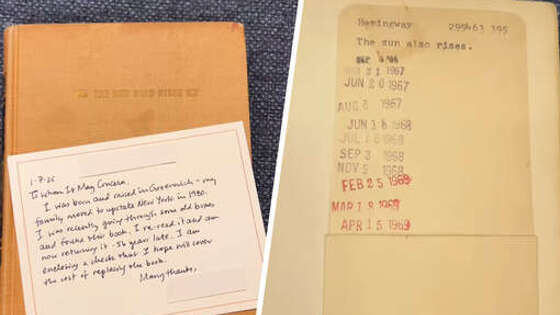 THE SUN ALSO RISES
1-7-25
To Whom It May Concern,
I was born and raised in Greenwich - my
family moved to upstate New York in 1980.
I was recently going through some old boxes
and found this book. I re-read it and am
now returning it - 56 years late. I am
enclosing a check that I hope will cover
the cost of replacing the book.
Many thanks,
Hemingway 299463 395
The sun also rises.
21 1967
JUN 20 1967
AUG 8 1967
JUN 18 1968
JUL 16 1968
SEP 3 1968
NOV 5 1968
FEB 25 1969
MAR 18 1969
APR 15 1969